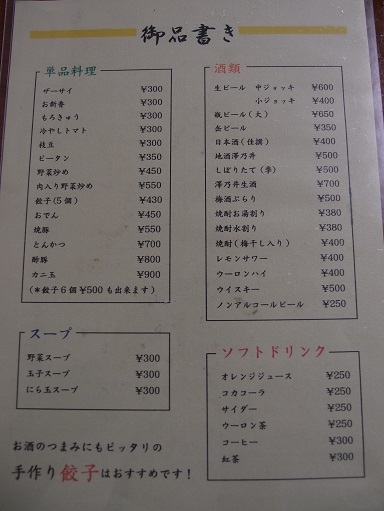 御品書き
単品料理
ザーサイ ¥300
お新香 ¥300
もろきゅう ¥300
冷やしトマト ¥300
枝豆 ¥300
ピータン ¥350
野菜炒め ¥450
肉入り野菜炒め ¥550
餃子(5個) ¥430
おでん ¥450
焼豚 ¥550
とんかつ ¥700
酢豚 ¥800
カニ玉 ¥900
(*餃子6個¥500も出来ます)
スープ
野菜スープ ¥300
玉子スープ ¥300
にら玉スープ ¥300
お酒のつまみにもピッタリの
手作り餃子はおすすめです!
酒類
生ビール 中ジョッキ ¥600
小ジョッキ ¥400
瓶ビール(大) ¥650
缶ビール ¥350
日本酒(佳撰) ¥400
地酒澤乃井 ¥500
しぼりたて(季) ¥500
澤乃井生酒 ¥700
梅酒ぷらり ¥500
焼酎お湯割り ¥380
焼酎水割り ¥380
焼酎(梅干し入り) ¥400
レモンサワー ¥400
ウーロンハイ ¥400
ウイスキー ¥500
ノンアルコールビール ¥250
ソフトドリンク
オレンジジュース ¥250
コカコーラ ¥250
サイダー ¥250
ウーロン茶 ¥250
コーヒー ¥300
紅茶 ¥300